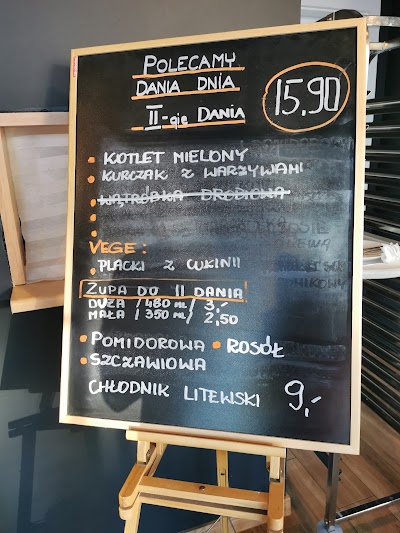 POLECAMY
DANIA DNIA
II-gie DANIA
15,90
• KOTLET MIELONY
• KURCZAK Z WARZYWAMI
WĄTRÓBKA DROBIOWA
VEGE:
• PLACKI Z CUKINII
ZUPA DO II DANIA
DUŻA / 480 ML / 3,-
MAŁA / 350 ML / 2,50
• POMIDOROWA • ROSÓŁ
• SZCZAWIOWA
CHŁODNIK LITEWSKI 9,-